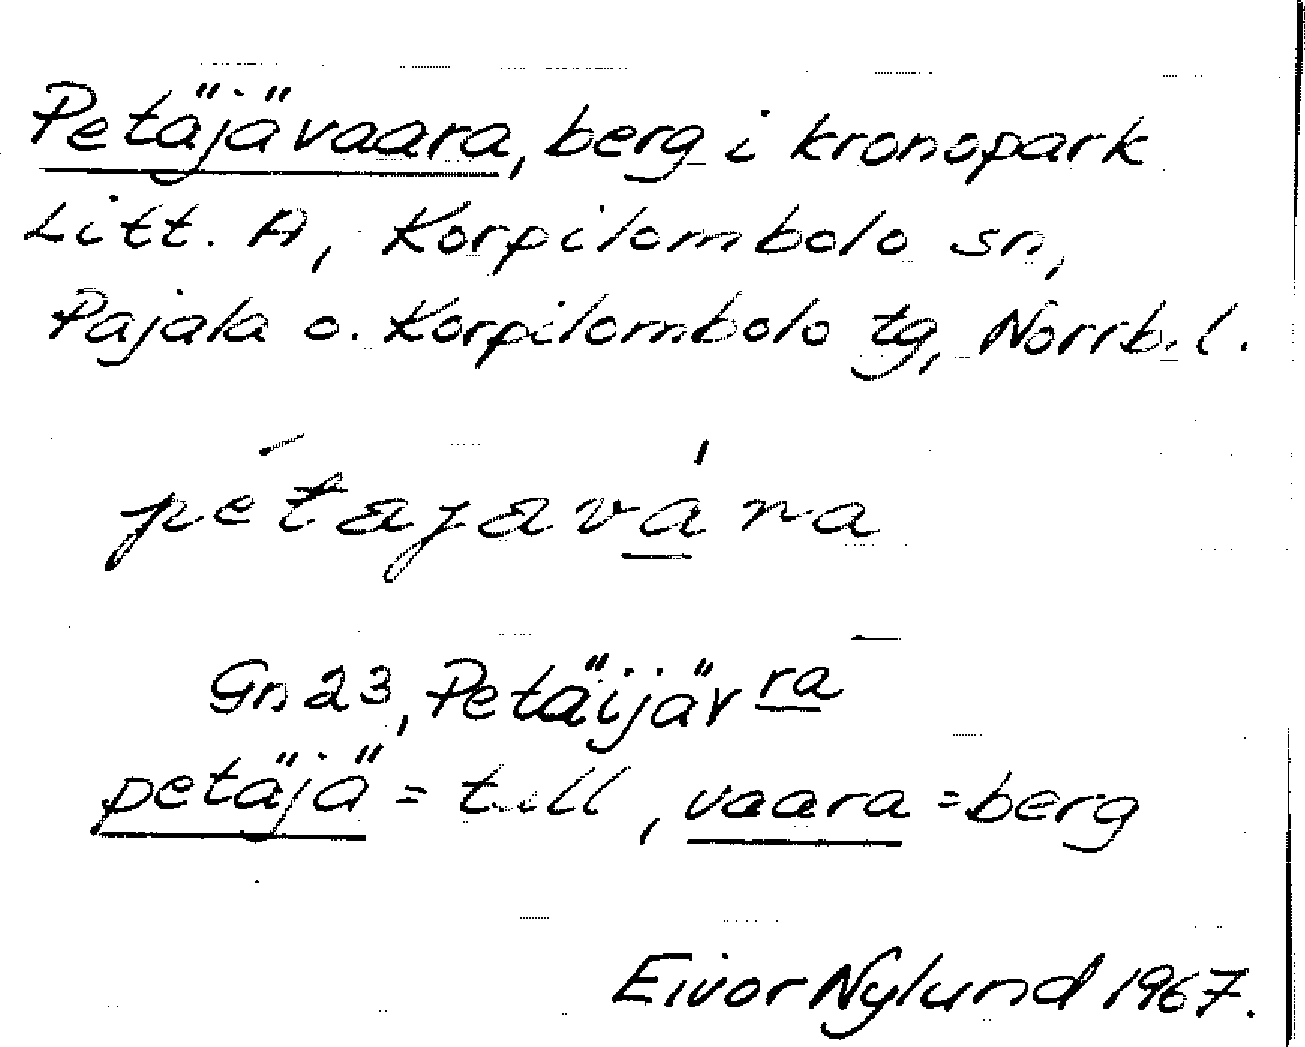 Petäjävaara, berg i kronopark
Litt. A, Korpilombolo sn,
Pajala o. Korpilombolo tg, Norrb. l.
pétajavára
Gn 23, Petäijäv ra
petäjä = tall, vaara = berg
Eivor Nylund 1967.